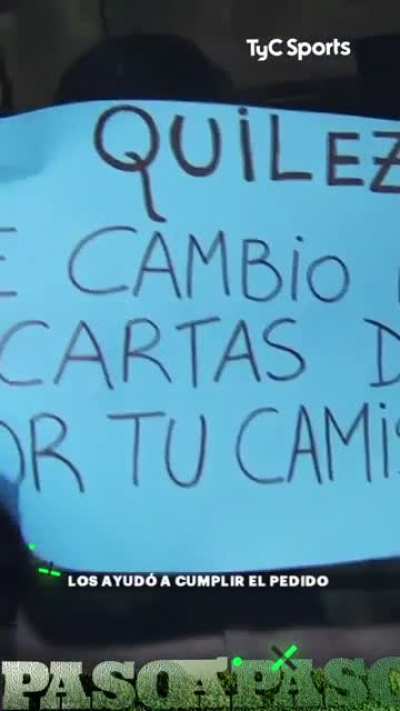 TyC Sports
QUiLEZ
E CAMBiO
CARTAS D
OR TU CAMiS
LOS AYUDÓ A CUMPLIR EL PEDIDO
PASO A PASO